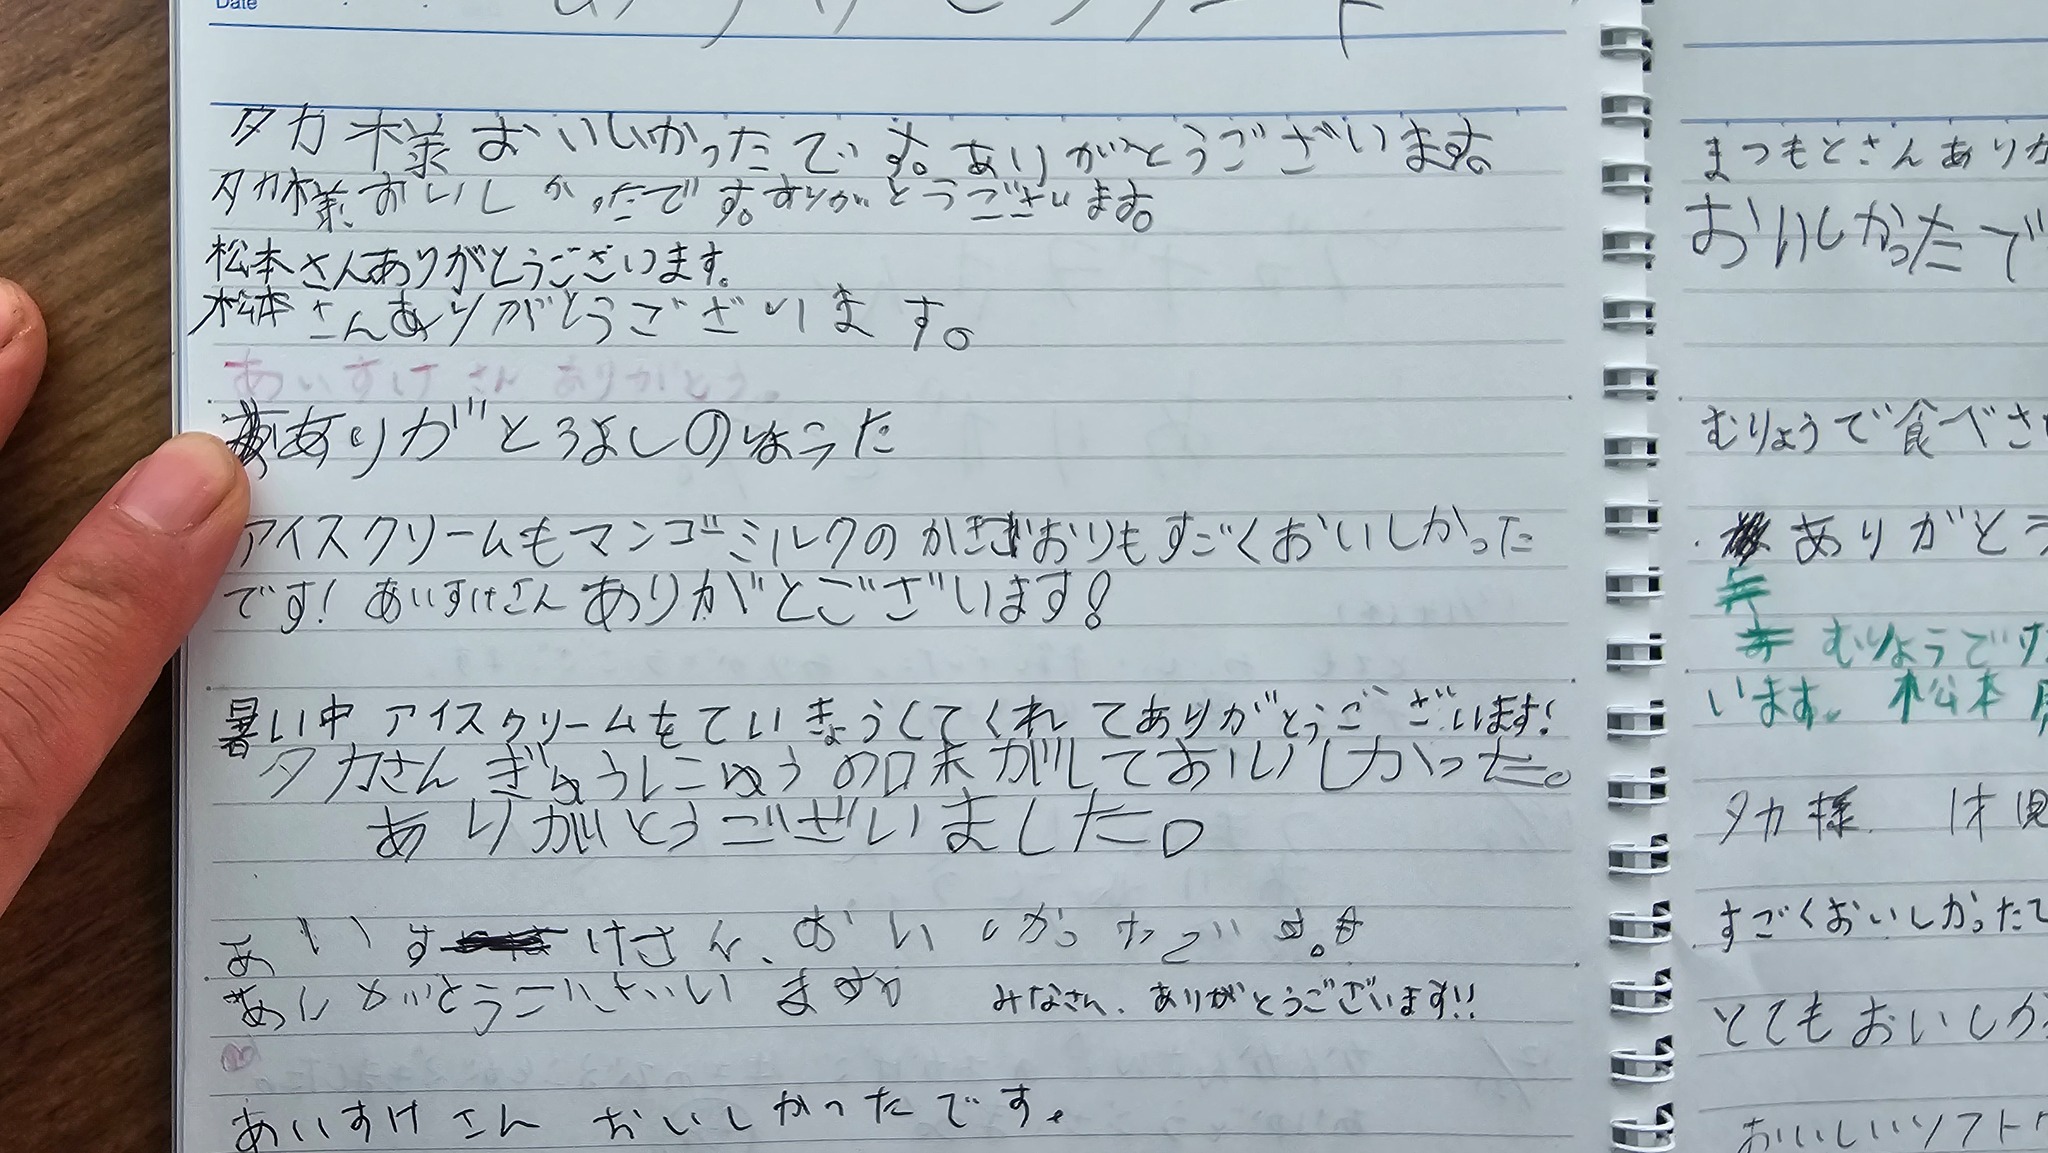 Date
タカ様おいしかったです。ありがとうございます。
タカ様おいしかったです。ありがとうございます。
松本さんありがとうございます。
松本さんありがとうございます。
あいすけさん ありがとう。
ありがとうよしのりょうた
アイスクリームもマンゴーミルクのかきごおりもすごくおいしかった
です!あいすけさんありがとございます!
暑い中 アイスクリームをていきょうくてくれてありがとうございます!
タカさん ぎゅうにゅうの味がしておいしかった。
ありがとうございました。
あいすけさん、おいしかったです。
ありがとうございます
みなさん、ありがとうございます!!
あいすけさん おいしかったです。
まつもとさんありが
おいしかったで
むりょうで食べさ
ありがとう
むりょうで
います。松本
タカ様 1才児
すごくおいしかったで
とてもおいしか
おいしいソフトク